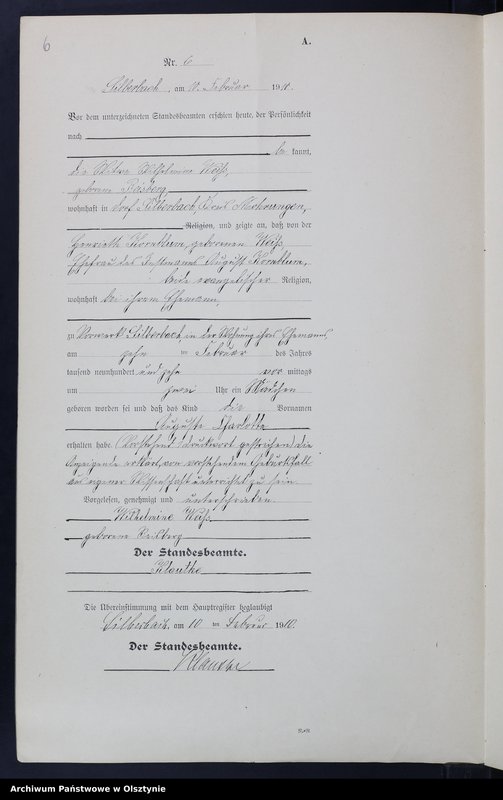 6
A.
Nr. 6
Silberbach, am 10. Februar 1910.
Vor dem unterzeichneten Standesbeamten erschien heute, der Persönlichkeit
nach
be kannt,
die Witwe Wilhelmine Weiß,
geborene
wohnhaft in Dorf Silberbach, Kreis Mohrungen,
Religion, und zeigte an, daß von der
Henriette Kornblum, geborenen Weiß,
Ehefrau des Instmanns August Kornblum,
beide evangelischer Religion,
wohnhaft bei ihrem Ehemann,
zu Vorwerk Silberbach, in der Wohnung ihres Ehemanns,
am zehn ten Februar des Jahres
tausend neunhundert und zehn vor mittags
um zwei Uhr ein Mädchen
geboren worden sei und daß das Kind die Vornamen
Auguste Charlotte
erhalten habe. (Vorstehend 1 Druckwort gestrichen) die
Anzeigende erklärt, von vorstehendem Geburtsfall
aus eigener Wissenschaft unterrichtet zu sein.
Vorgelesen, genehmigt und unterschrieben.
Wilhelmine Weiß
geborene
Der Standesbeamte.
Die Übereinstimmung mit dem Hauptregister beglaubigt
Silberbach, am 10 ten Februar 1910
Der Standesbeamte.
Archiwum Państwowe w Olsztynie